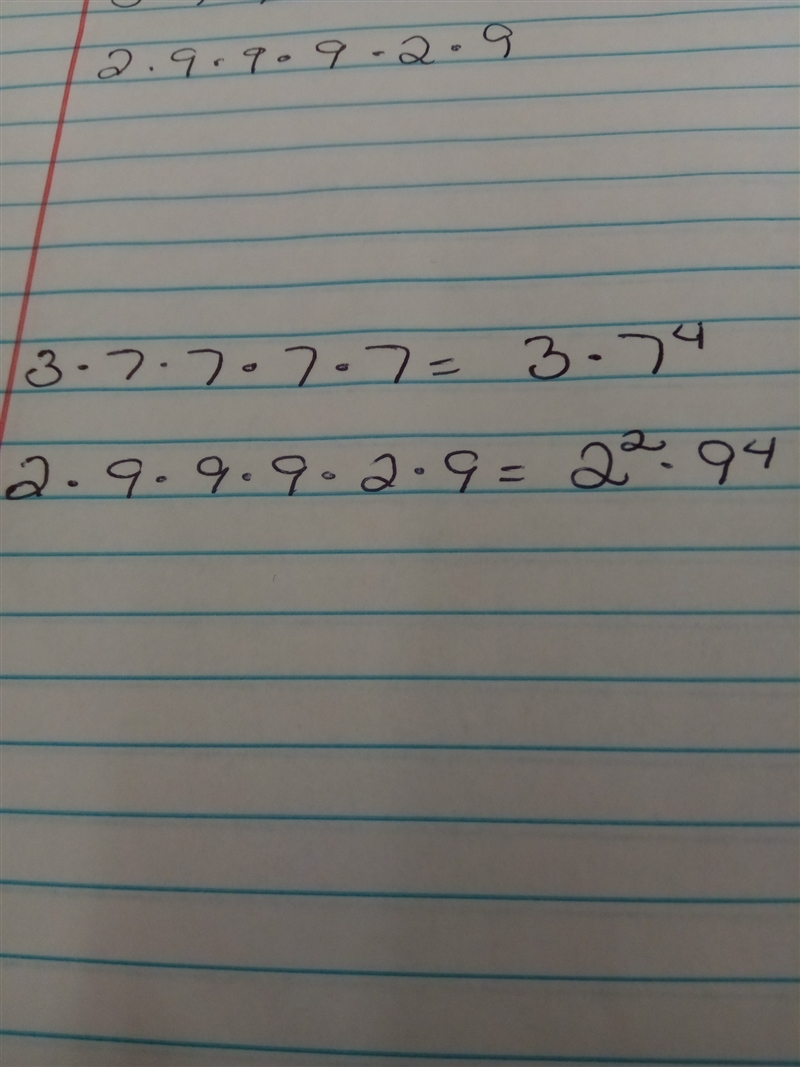 2 · 9 · 9 · 9 · 2 · 9
3 · 7 · 7 · 7 · 7 = 3 · 7⁴
2 · 9 · 9 · 9 · 2 · 9 = 2² · 9⁴